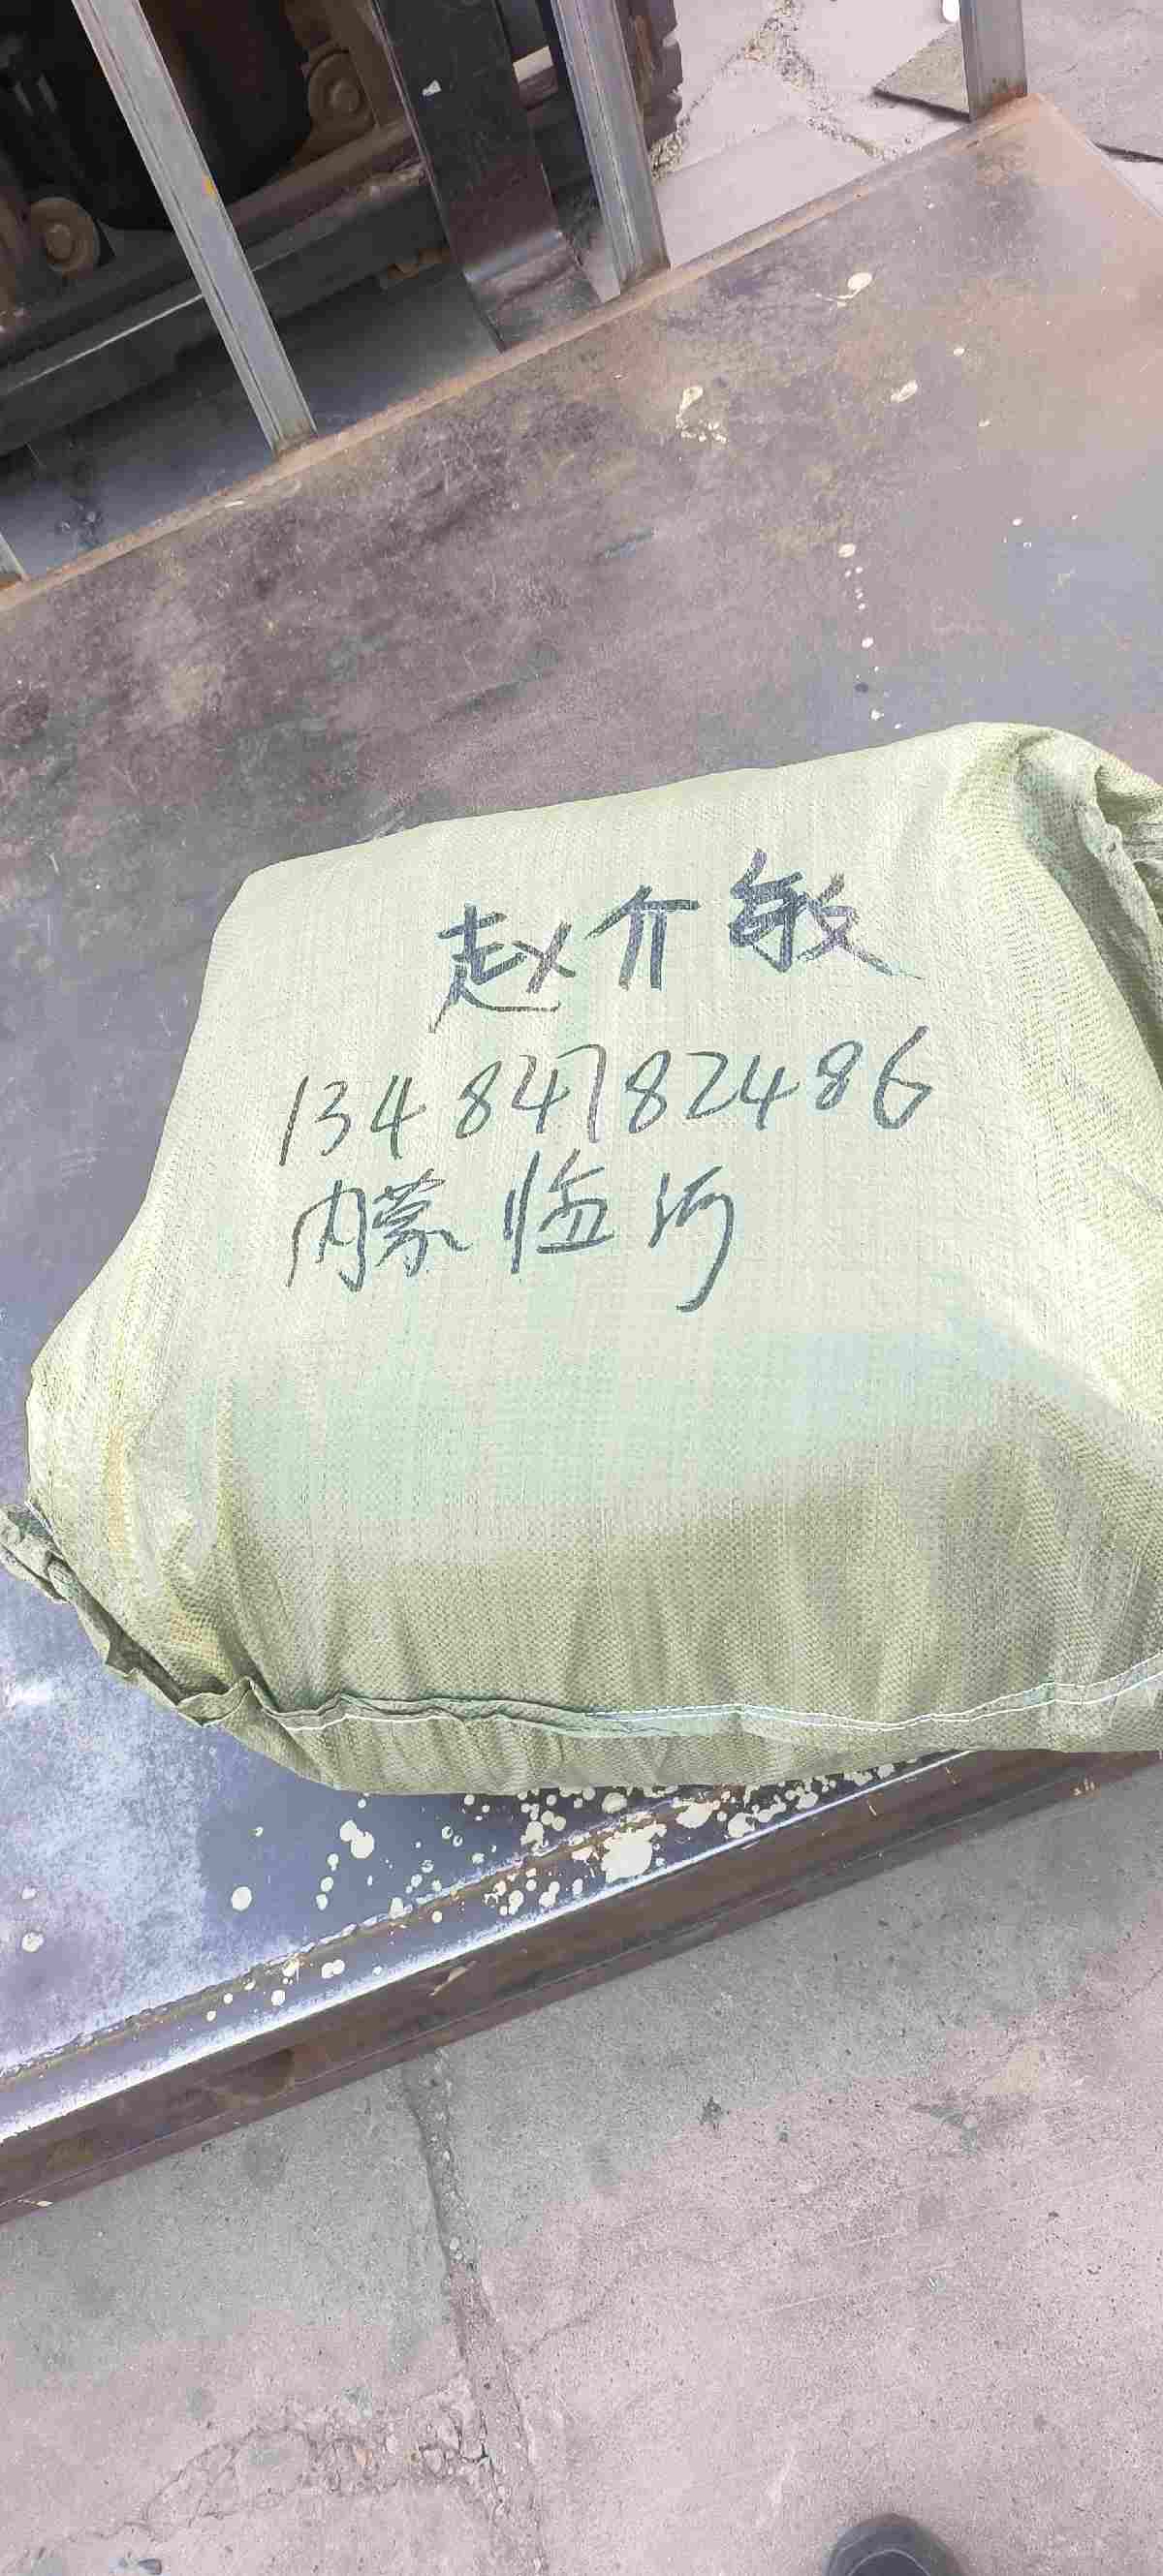 赵介敏
13484782486
内蒙临河